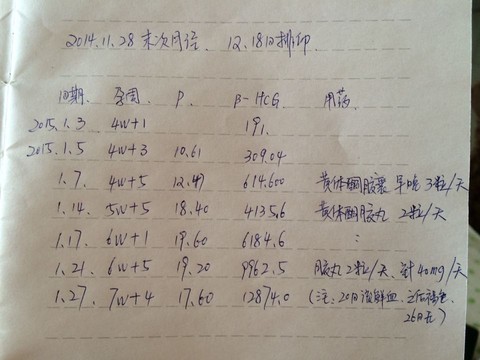 2014.11.28 末次月经、12.18日排卵.
日期. 孕周. P. β-HCG 用药.
2015.1.3 4w+1 191.
2015.1.5 4w+3 10.61 309.04
1.7. 4w+5 12.47 614.600 黄体酮胶囊 早晚 3粒/天
1.14. 5w+5 18.40 4135.6 黄体酮胶丸 2粒/天
1.17. 6w+1 19.60 6184.6 :
1.21. 6w+5 19.20 9962.5 胶丸2粒/天、针40mg/天
1.27. 7w+4 17.60 12874.0 (注:20日淡鲜血、之后褐色、
26日无)